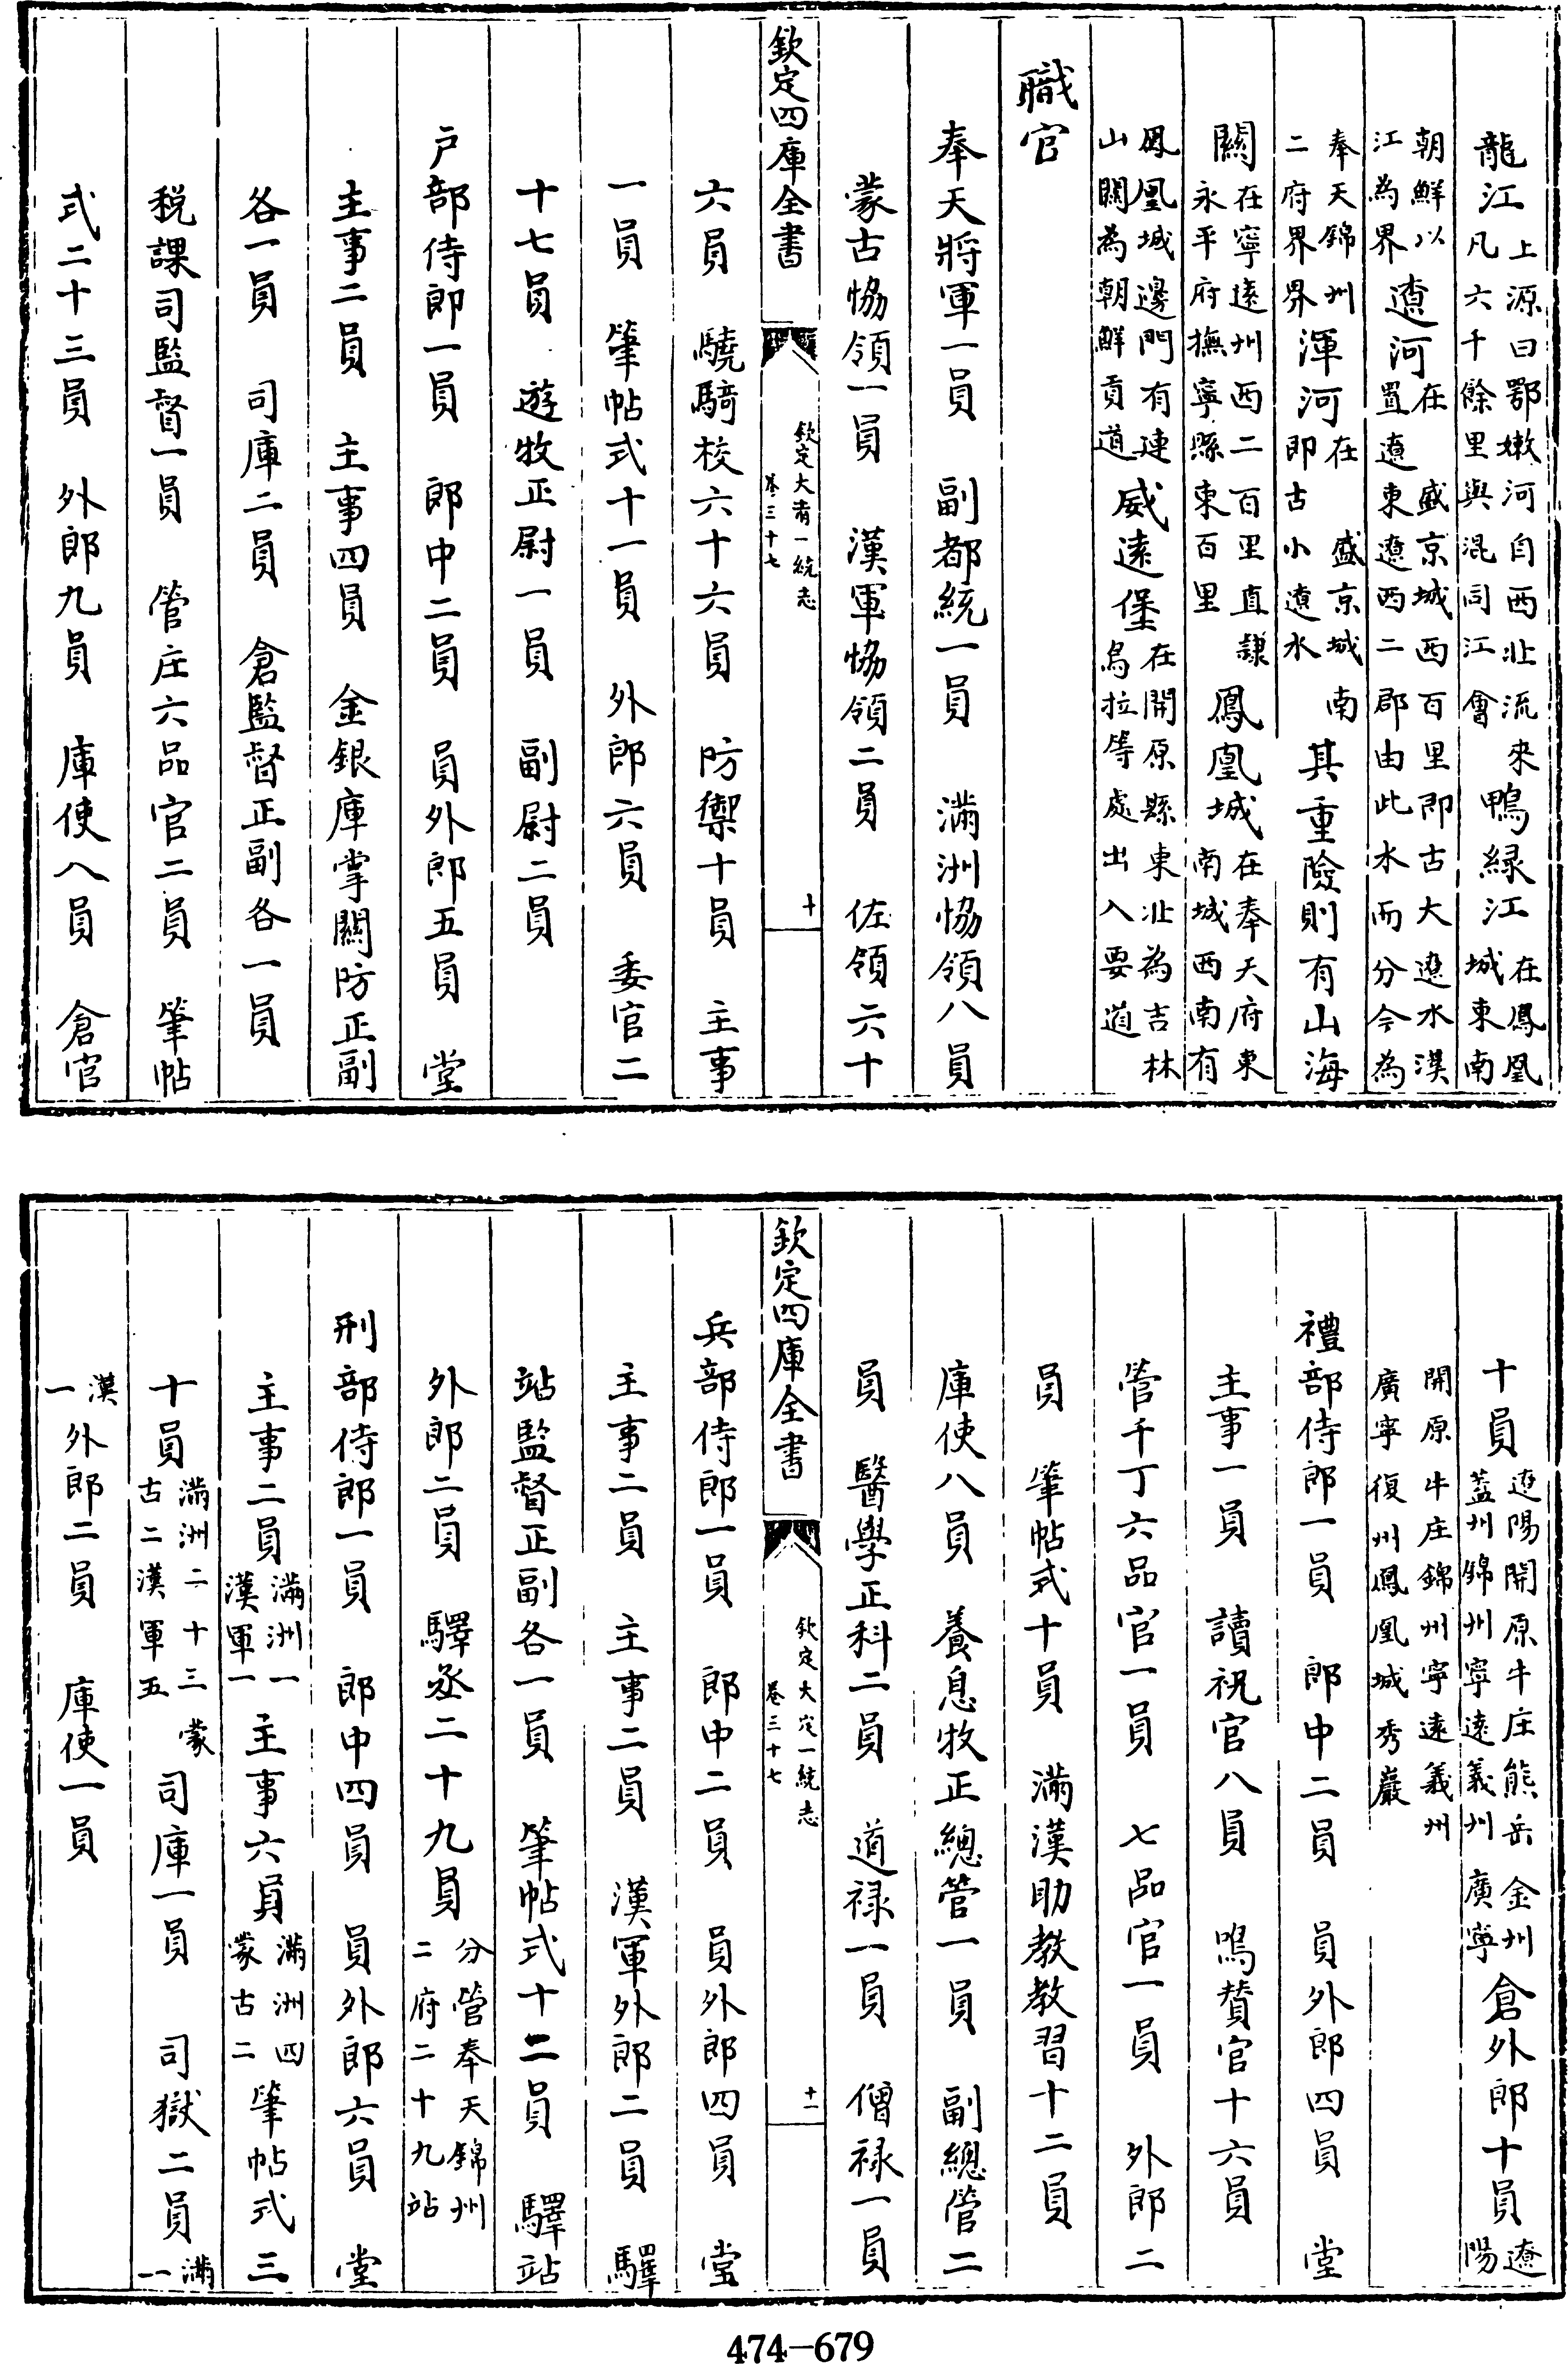 龍江上源曰鄂嫩河自西北流來凡六千餘里與混同江會鴨緑江在鳳凰城東南
朝鮮以江為界遼河在盛京城西百里即古大遼水漢置遼東遼西二郡由此水而分今為
奉天錦州二府界界渾河在盛京城南即古小遼水其重險則有山海
關在寧遠州西二百里直隸永平府撫寧縣東百里鳳凰城在奉天府東南城西南有
鳳凰城邊門有連山關為朝鮮貢道威遠堡在開原縣東北為吉林烏拉等處出入要道
職官
奉天將軍一員 副都統一員 滿洲恊領八員
蒙古恊領一員 漢軍恊領二員 佐領六十
欽定四庫全書 欽定大清一統志 卷三十七 十
六員 驍騎校六十六員 防禦十員 主事
一員 筆帖式十一員 外郎六員 委官二
十七員 遊牧正尉一員 副尉二員
户部侍郎一員 郎中二員 員外郎五員 堂
主事二員 主事四員 金銀庫掌關防正副
各一員 司庫二員 倉監督正副各一員
税課司監督一員 管庄六品官二員 筆帖
式二十三員 外郎九員 庫使八員 倉官
十員遼陽開原牛庄熊岳金州蓋州錦州寧遠義州廣寧倉外郎十員遼陽
開原牛庄錦州寧遠義州廣寧復州鳳凰城秀巖
禮部侍郎一員 郎中二員 員外郎四員 堂
主事一員 讀祝官八員 鳴贊官十六員
管千丁六品官一員 七品官一員 外郎二
員 筆帖式十員 滿漢助教教習十二員
庫使八員 養息牧正總管一員 副總管二
員 醫學正科二員 道禄一員 僧禄一員
欽定四庫全書 欽定大定一統志 卷三十七 十一
兵部侍郎一員 郎中二員 員外郎四員 堂
主事二員 主事二員 漢軍外郎二員 驛
站監督正副各一員 筆帖式十二員 驛站
外郎二員 驛丞二十九員分管奉天錦州二府二十九站
刑部侍郎一員 郎中四員 員外郎六員 堂
主事二員滿洲一漢軍一 主事六員滿洲四蒙古二筆帖式三
十員滿洲二十三蒙古二漢軍五 司庫一員 司獄二員滿一
漢一外郎二員 庫使一員
474-679